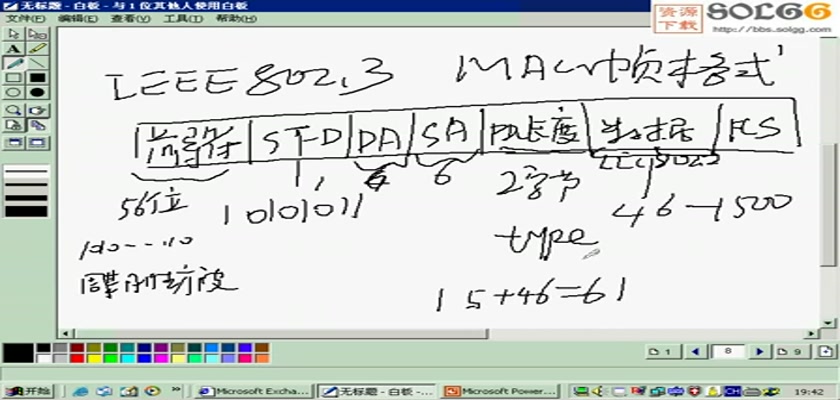 无标题 - 白板 - 与 1 位其他人使用白板
文件(F) 编辑(E) 查看(V) 工具(T) 帮助(H)
资源下载 SOLGG
http://bbs.solgg.com
IEEE802.3 MAC帧格式
前导符 STD DA SA 长度 数据 FCS
6 6 2字节
56位 10101011 46-1500
type
1010---10
15+46=61
1 8 9
开始 Microsoft Excha... 无标题 - 白板 -... Microsoft Power... CH 19:42